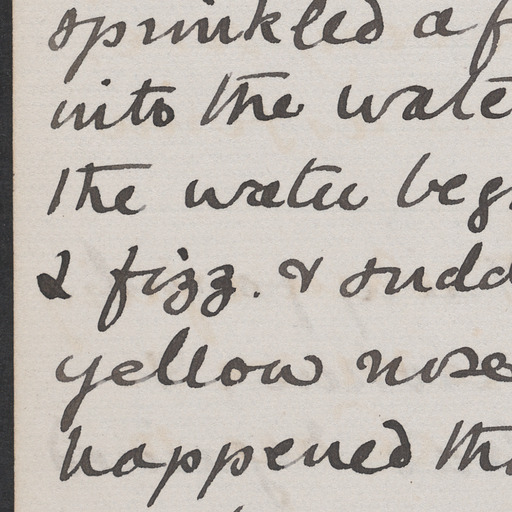 sprinkled a f
into the wate
the water beg
& fizz. & sudd
yellow nose
happened tha